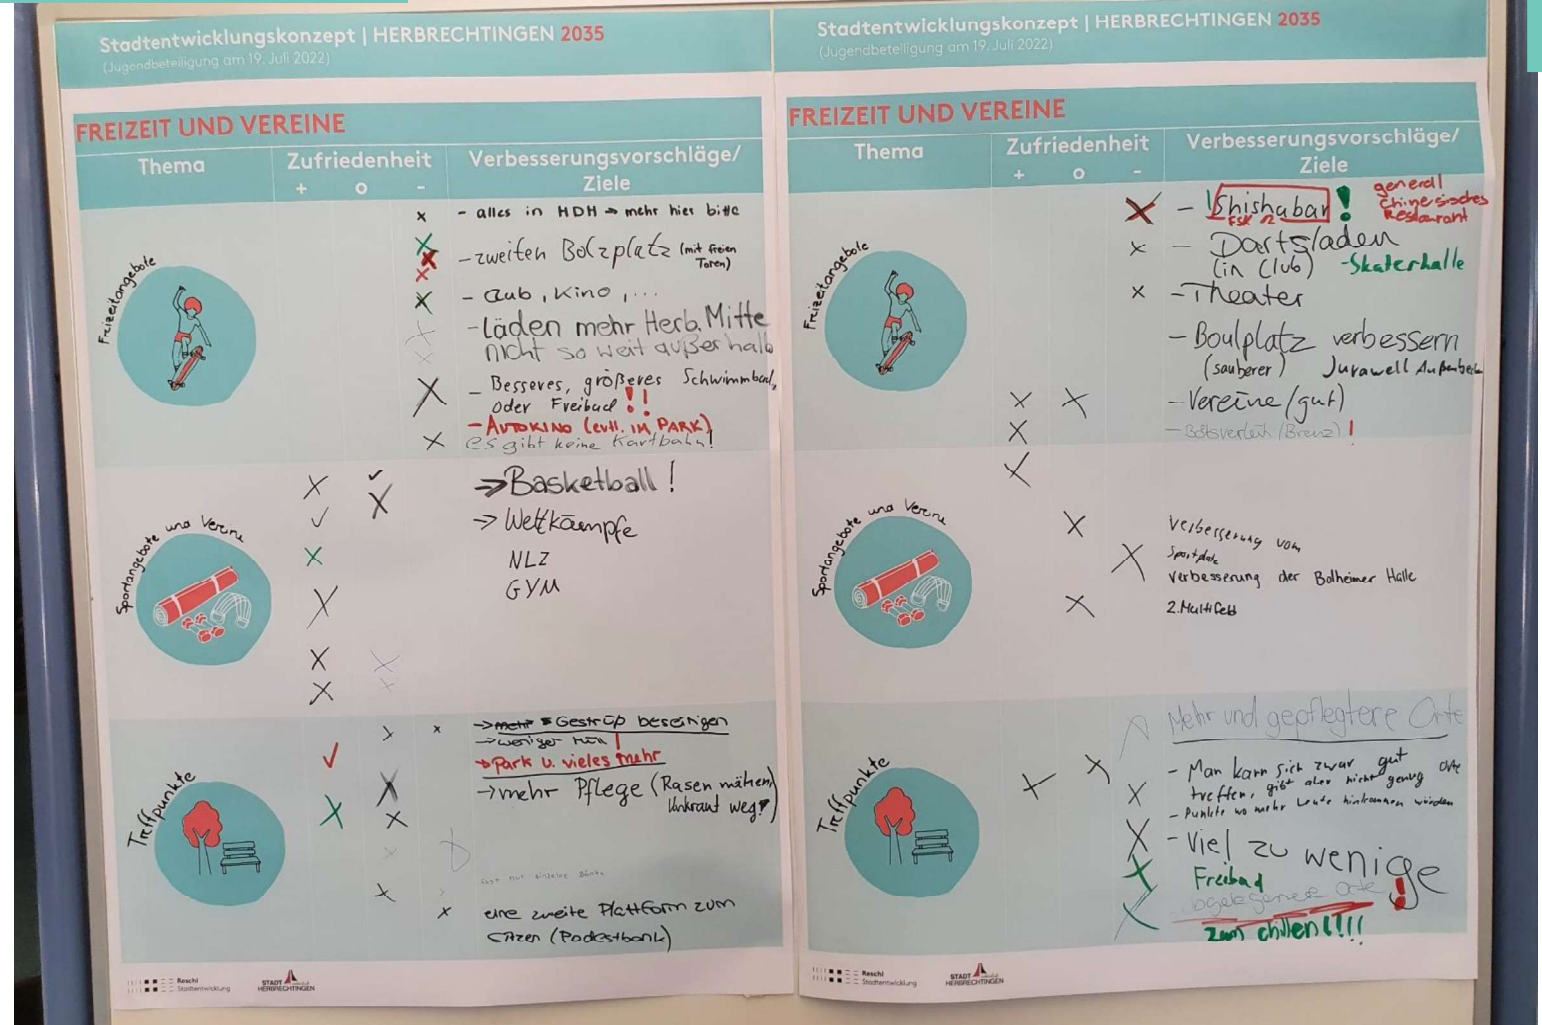 Stadtentwicklungskonzept | HERBRECHTINGEN 2035
(Jugendbeteiligung am 19. Juli 2022)
FREIZEIT UND VEREINE
Thema
Zufriedenheit
+ o -
Verbesserungsvorschläge/
Ziele
Freizeitangebote
- alles in HDH → mehr hier bitte
- zweiten Bolzplatz (mit freien
Toren)
- Club, Kino, ...
- Läden mehr Herb. Mitte
nicht so weit außerhalb
- Besseres, größeres Schwimmbad,
oder Freibad !!
- AUTOKINO (evtl. IM PARK)
es gibt keine Kartbahn!
Sportangebote und Vereine
→ Basketball!
→ Wettkämpfe
NLZ
GYM
Treffpunkte
→ mehr Gestrüp beseitigen
→ weniger Müll !
→ Park u. vieles mehr
→ mehr Pflege (Rasen mähen,
Unkraut weg!)
fast nur einzelne Bänke
eine zweite Plattform zum
sitzen (Podestbank)
Reschl
Stadtentwicklung
STADT
HERBRECHTINGEN
Stadtentwicklungskonzept | HERBRECHTINGEN 2035
(Jugendbeteiligung am 19. Juli 2022)
FREIZEIT UND VEREINE
Thema
Zufriedenheit
+ o -
Verbesserungsvorschläge/
Ziele
Freizeitangebote
- Shishabar !
FSK 12
generell
Chinesisches
Restaurant
- Dartsladen
(in Club) - Skaterhalle
- Theater
- Boulplatz verbessern
(sauberer) Jurawell Außenbeck
- Vereine (gut)
- Bootsverleih (Brenz) !
Sportangebote und Vereine
Verbesserung vom
Sportplatz
Verbesserung der Bolheimer Halle
2. Multifeld
Treffpunkte
Mehr und gepflegtere Orte
- Man kann sich zwar gut
treffen, gibt aber nicht genug Orte
- Punkte wo mehr Leute hinkommen würden
- Viel zu wenige !
Freibad
abgelegenere Orte
zum chillen!!!!
Reschl
Stadtentwicklung
STADT
HERBRECHTINGEN